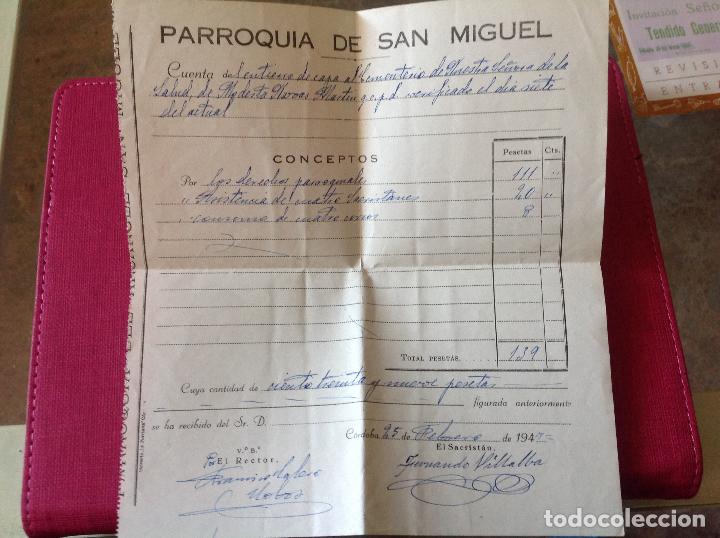 PARROQUIA DE SAN MIGUEL
Cuenta del entierro de capa al Cementerio de Nuestra Señora de la
Salud, de Modesta Navas Martin q.e.p.d. verificado el dia siete
del actual
CONCEPTOS
Pesetas Cts.
Por los derechos parroquiales 111 "
" Asistencia de cuatro Sacristanes 20 "
" consumo de cuatro 8
TOTAL PESETAS 139
Cuya cantidad de ciento treinta y nueve pesetas
figurada anteriormente
se ha recibido del Sr. D.
Córdoba 25 de Febrero de 194
V.º B.º
Por El Rector,
El Sacristán,
Fernando Villalba
PARROQUIA DEL ARCANGEL SAN MIGUEL
Invitación Seño
Tendido Gener
REVISI
ENTRA
todocoleccion
todocoleccion.net